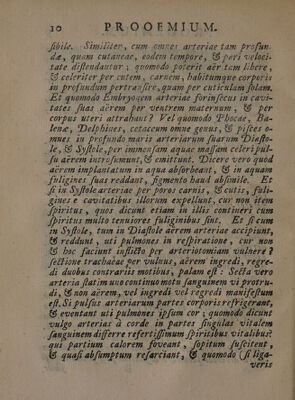 10 PROOEMIUM.
sibile. Similiter, cum omnes arteriae tam profun-
dæ, quam cutaneae, eodem tempore, & pari veloci-
tate distendantur; quomodo poterit aër tam libere,
& celeriter per cutem, carnem, habitumque corporis
in profundum pertransire, quam per cuticulam solam.
Et quomodo Embryorum arteriae forinsecus in cavi-
tates suas aërem per ventrem maternum, & per
corpus uteri attrahant? Vel quomodo Phocae, Ba-
lenæ, Delphines, cetaceum omne genus, & pisces o-
mnes in profundo maris arteriarum suarum Diasto-
le, & Systole, per immensam aquae massam celeri pul-
su aërem introsumunt, & emittunt. Dicere vero quod
aërem implantatum in aqua absorbeant, & in aquam
fuligines suas reddant, figmento haud absimile. Et
si in Systole arteriae per poros carnis, & cutis, fuli-
gines e cavitatibus illorum expellunt, cur non item
spiritus, quos dicunt etiam in illis contineri cum
spiritus multo tenuiores fuliginibus sint. Et si cum
in Systole, tum in Diastole aërem arteriae accipiunt,
& reddunt, uti pulmones in respiratione, cur non
& hoc faciunt inflicto per arteriotomiam vulnere?
sectione tracheæ per vulnus, aërem ingredi, regre-
di duobus contrariis motibus, palam est: Secta vero
arteria statim uno continuo motu sanguinem vi protru-
di, & non aërem, vel ingredi vel regredi manifestum
est. Si pulsus arteriarum partes corporis refrigerant,
& eventant uti pulmones ipsum cor; quomodo dicunt
vulgo arterias à corde in partes singulas vitalem
sanguinem differre refertissimum spiritibus vitalibus
qui partium calorem foveant, sopitum suscitent,
& quasi absumptum refarciant, & quomodo (si liga-
veris